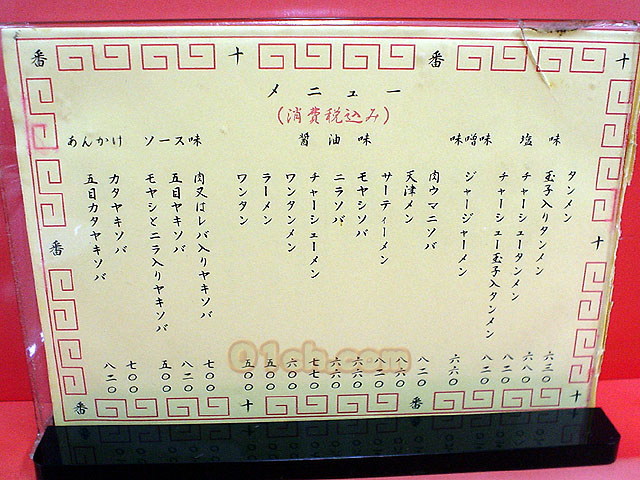 番 十 番 十
メニュー
(消費税込み)
塩味
タンメン 六三〇
玉子入りタンメン 六八〇
チャーシュータンメン 八二〇
チャーシュー玉子入タンメン 八二〇
味噌味
ジャージャーメン 六六〇
醤油味
肉ウマニソバ 八二〇
天津メン 八六〇
サーティーメン 八二〇
モヤシソバ 六六〇
ニラソバ 六六〇
チャーシューメン 七七〇
ワンタンメン 六〇〇
ラーメン 五〇〇
ワンタン 五〇〇
ソース味
肉又はレバ入りヤキソバ 七〇〇
五目ヤキソバ 八二〇
モヤシとニラ入りヤキソバ 五〇〇
あんかけ
カタヤキソバ 七〇〇
五目カタヤキソバ 八二〇
番 十
番 十 番 十
01ch.com